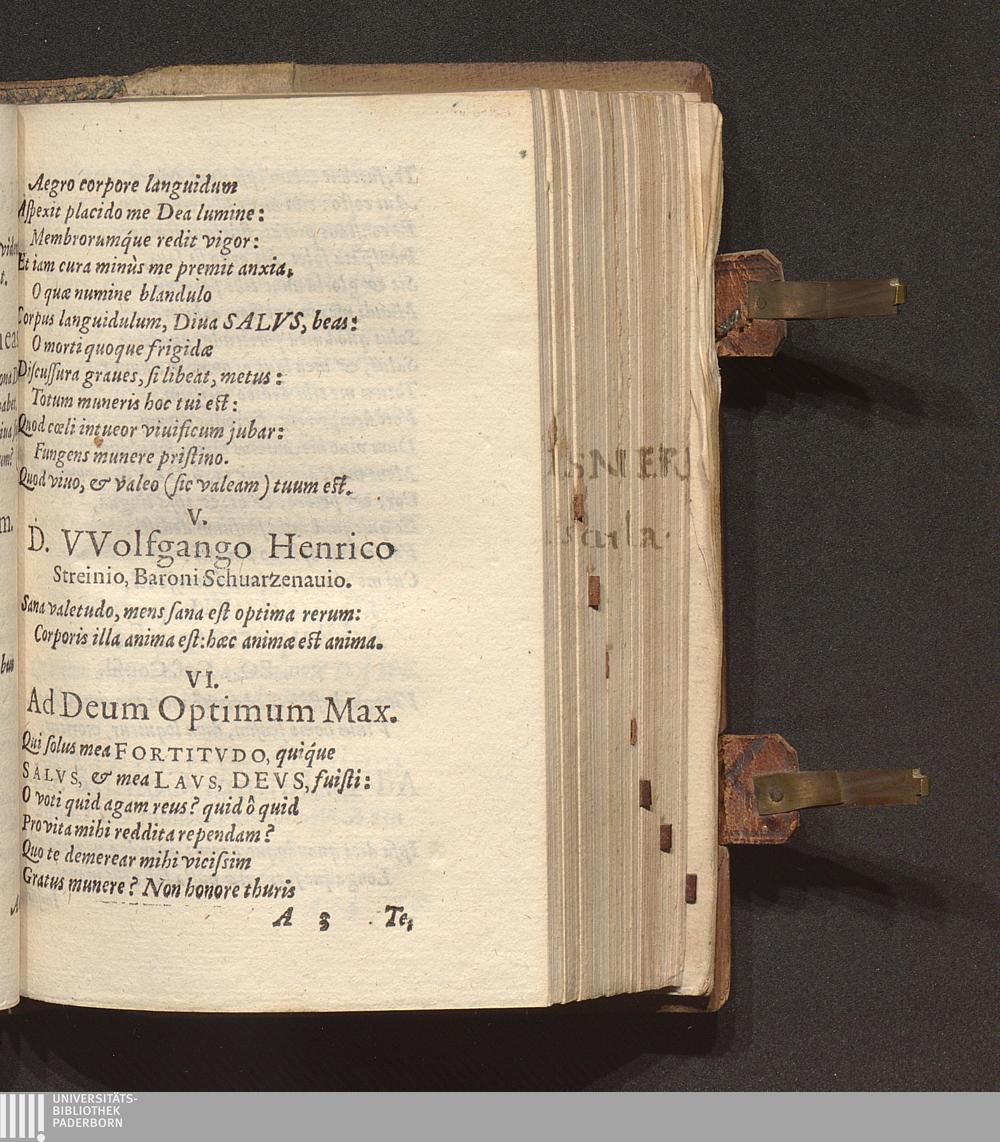 Aegro corpore languidum
Aſpexit placido me Dea lumine:
Membrorumq́ue redit vigor:
Et iam cura minùs me premit anxia,
O quæ numine blandulo
Corpus languidulum, Diua SALVS, beas:
O morti quoque frigidæ
Diſcuſſura graues, ſi libeat, metus:
Totum muneris hoc tui est:
Quod cœli intueor viuificum jubar:
Fungens munere priſtino.
Quod viuo, & valeo (ſic valeam) tuum est.
V.
D. VVolfgango Henrico
Streinio, Baroni Schuarzenauio.
Sana valetudo, mens ſana eſt optima rerum:
Corporis illa anima eſt: hæc animæ est anima.
VI.
Ad Deum Optimum Max.
Qui ſolus mea FORTITVDO, quiq́ue
SALVS, & mea LAVS, DEVS, fuiſti:
O voti quid agam reus? quid ô quid
Pro vita mihi reddita rependam?
Quo te demerear mihi viciſsim
Gratus munere? Non honore thuris
A 3 Te,
UNIVERSITÄTS-
BIBLIOTHEK
PADERBORN